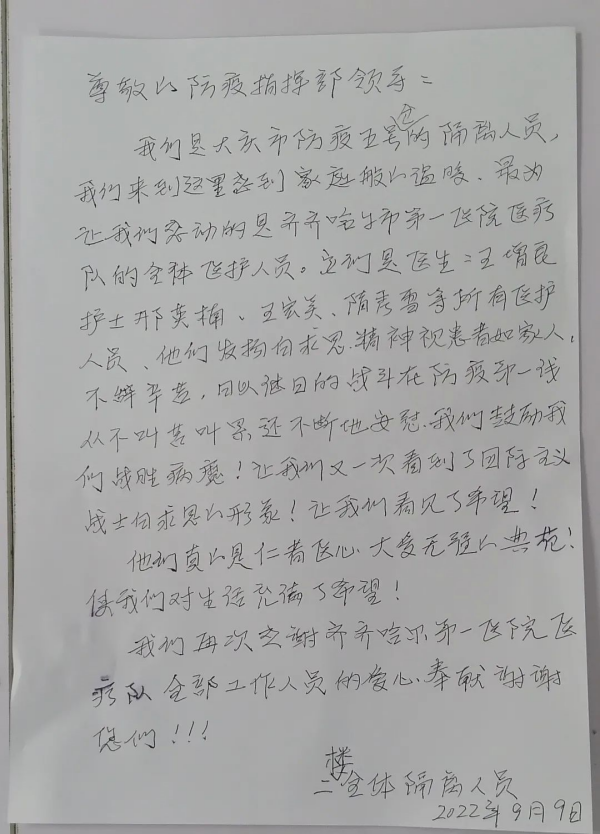 尊敬的防疫指挥部领导：
我们是大庆市防疫五号仓的隔离人员，
我们来到这里感到家庭般的温暖、最为
让我们感动的是齐齐哈尔市第一医院医疗
队的全体医护人员。它们是医生：王增昆
护士邢英楠、王宏英、隋秀雪等所有医护
人员、他们发扬白求恩精神视患者如家人，
不辞辛苦，日以继日的战斗在防疫第一线
从不叫苦叫累还不断地安慰、我们鼓励我
们战胜病魔！让我们又一次看到了国际主义
战士白求恩的形象！让我们看见了希望！
他们真的是仁者医心、大爱无疆的典范！
使我们对生活充满了希望！
我们再次感谢齐齐哈尔第一医院医
疗队全部工作人员的爱心奉献谢谢
您们！！！
二楼全体隔离人员
2022年9月9日